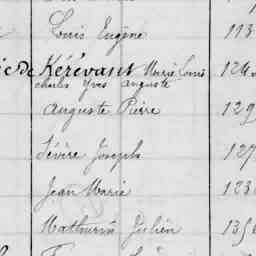 Louis Eugène 113
de Kérévant Marie Louis 124
Charles Yves Auguste
Auguste Pierre 129
Sévère Joseph 127
Jean Marie 123
Mathurin Julien 135